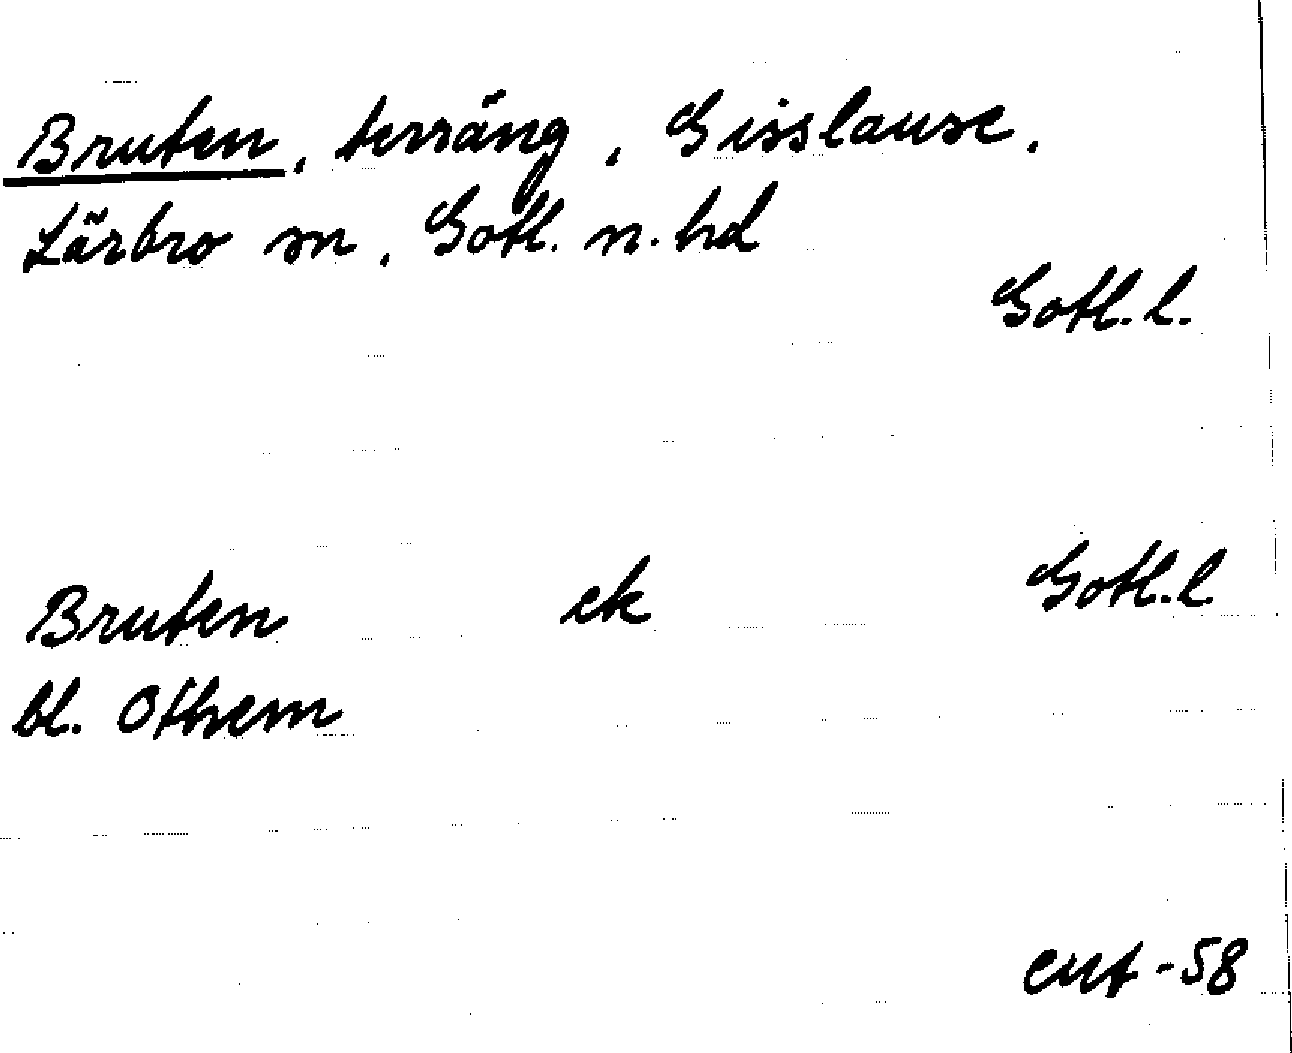 Bruten, terräng, Gisslause.
Lärbro sn, Gotl. n. hd
Gotl. l.
Bruten ek Gotl. l.
bl. Othem